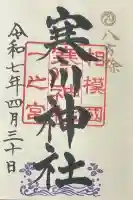 八方除
相模國
寒川神社
一之宮
令和七年四月三十日